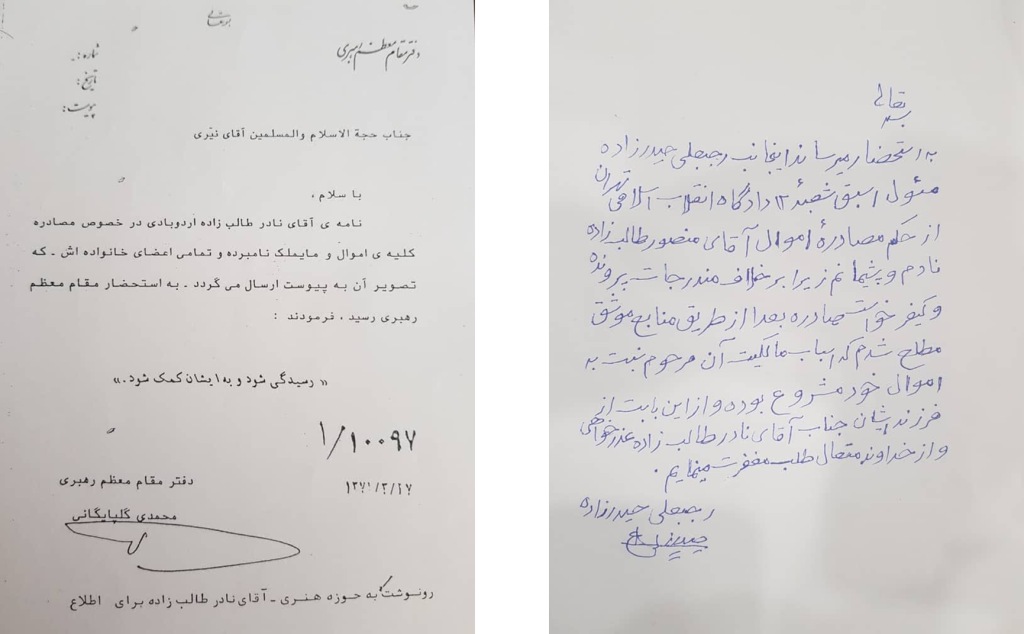 بسمه تعالی
دفتر مقام معظم رهبری
شماره :
تاریخ :
پیوست :
جناب حجة الاسلام والمسلمین آقای نیّری
با سلام ،
نامه ی آقای نادر طالب زاده اردوبادی در خصوص مصادره
کلیه ی اموال و مایملک نامبرده و تمامی اعضای خانواده اش ـ که
تصویر آن به پیوست ارسال می گردد ـ به استحضار مقام معظم
رهبری رسید ، فرمودند :
« رسیدگی شود و به ایشان کمک شود.»
۱/۱۰۰۹۷
۱۳۷۱/۲/۱۷
دفتر مقام معظم رهبری
محمدی گلپایگانی
رونوشت به حوزه هنری ـ آقای نادر طالب زاده برای اطلاع
بسمه تعالی
به استحضار میرساند اینجانب رجبعلی حیدرزاده
مسئول اسبق شعبهٔ ۱۲ دادگاه انقلاب اسلامی تهران
از حکم مصادرهٔ اموال آقای منصور طالب زاده
نادم و پشیمانم زیرا برخلاف مندرجات پرونده
و کیفرخواست مصادره بعدا از طریق منابع موثق
مطلع شدم که اسباب مالکیت آن مرحوم نسبت به
اموال خود مشروع بوده و از این بابت از
فرزند ایشان جناب آقای نادر طالب زاده عذرخواهی
و از خداوند متعال طلب مغفرت مینمایم .
رجبعلی حیدرزاده